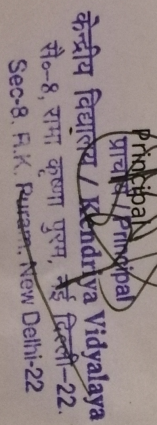 प्राचार्य / Principal
केन्द्रीय विद्यालय / Kendriya Vidyalaya
सै०-8, रामा कृष्णा पुरम, नई दिल्ली-22.
Sec-8, R.K. Puram, New Delhi-22